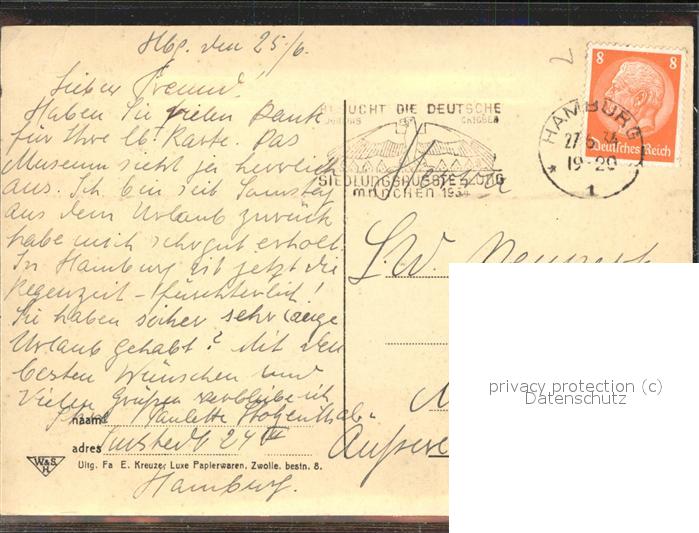 Hbg. den 25/6.
Lieber Freund!
Haben Sie vielen Dank
für Ihre lb. Karte. Das
Museum sieht ja herrlich
aus. Ich bin seit Samstag
aus dem Urlaub zurück
habe mich sehr gut erholt.
In Hamburg ist jetzt die
Regenzeit - fürchterlich!
Sie haben sicher sehr lange
Urlaub gehabt? Mit den
besten Wünschen und
Vielen Grüßen verbleibe ich
Ihre Paulette
naam
adres 24 III
Hamburg.
W&S
H
Uitg. Fa E. Kreuzer, Luxe Papierwaren, Zwolle. bestn. 8.
BESUCHT DIE DEUTSCHE
SIEDLUNGSAUSSTELLUNG
MÜNCHEN 1934
HAMBURG
27.6.
19-20
* 1
8 8
Deutsches Reich
S.W.
privacy protection (c)
Datenschutz